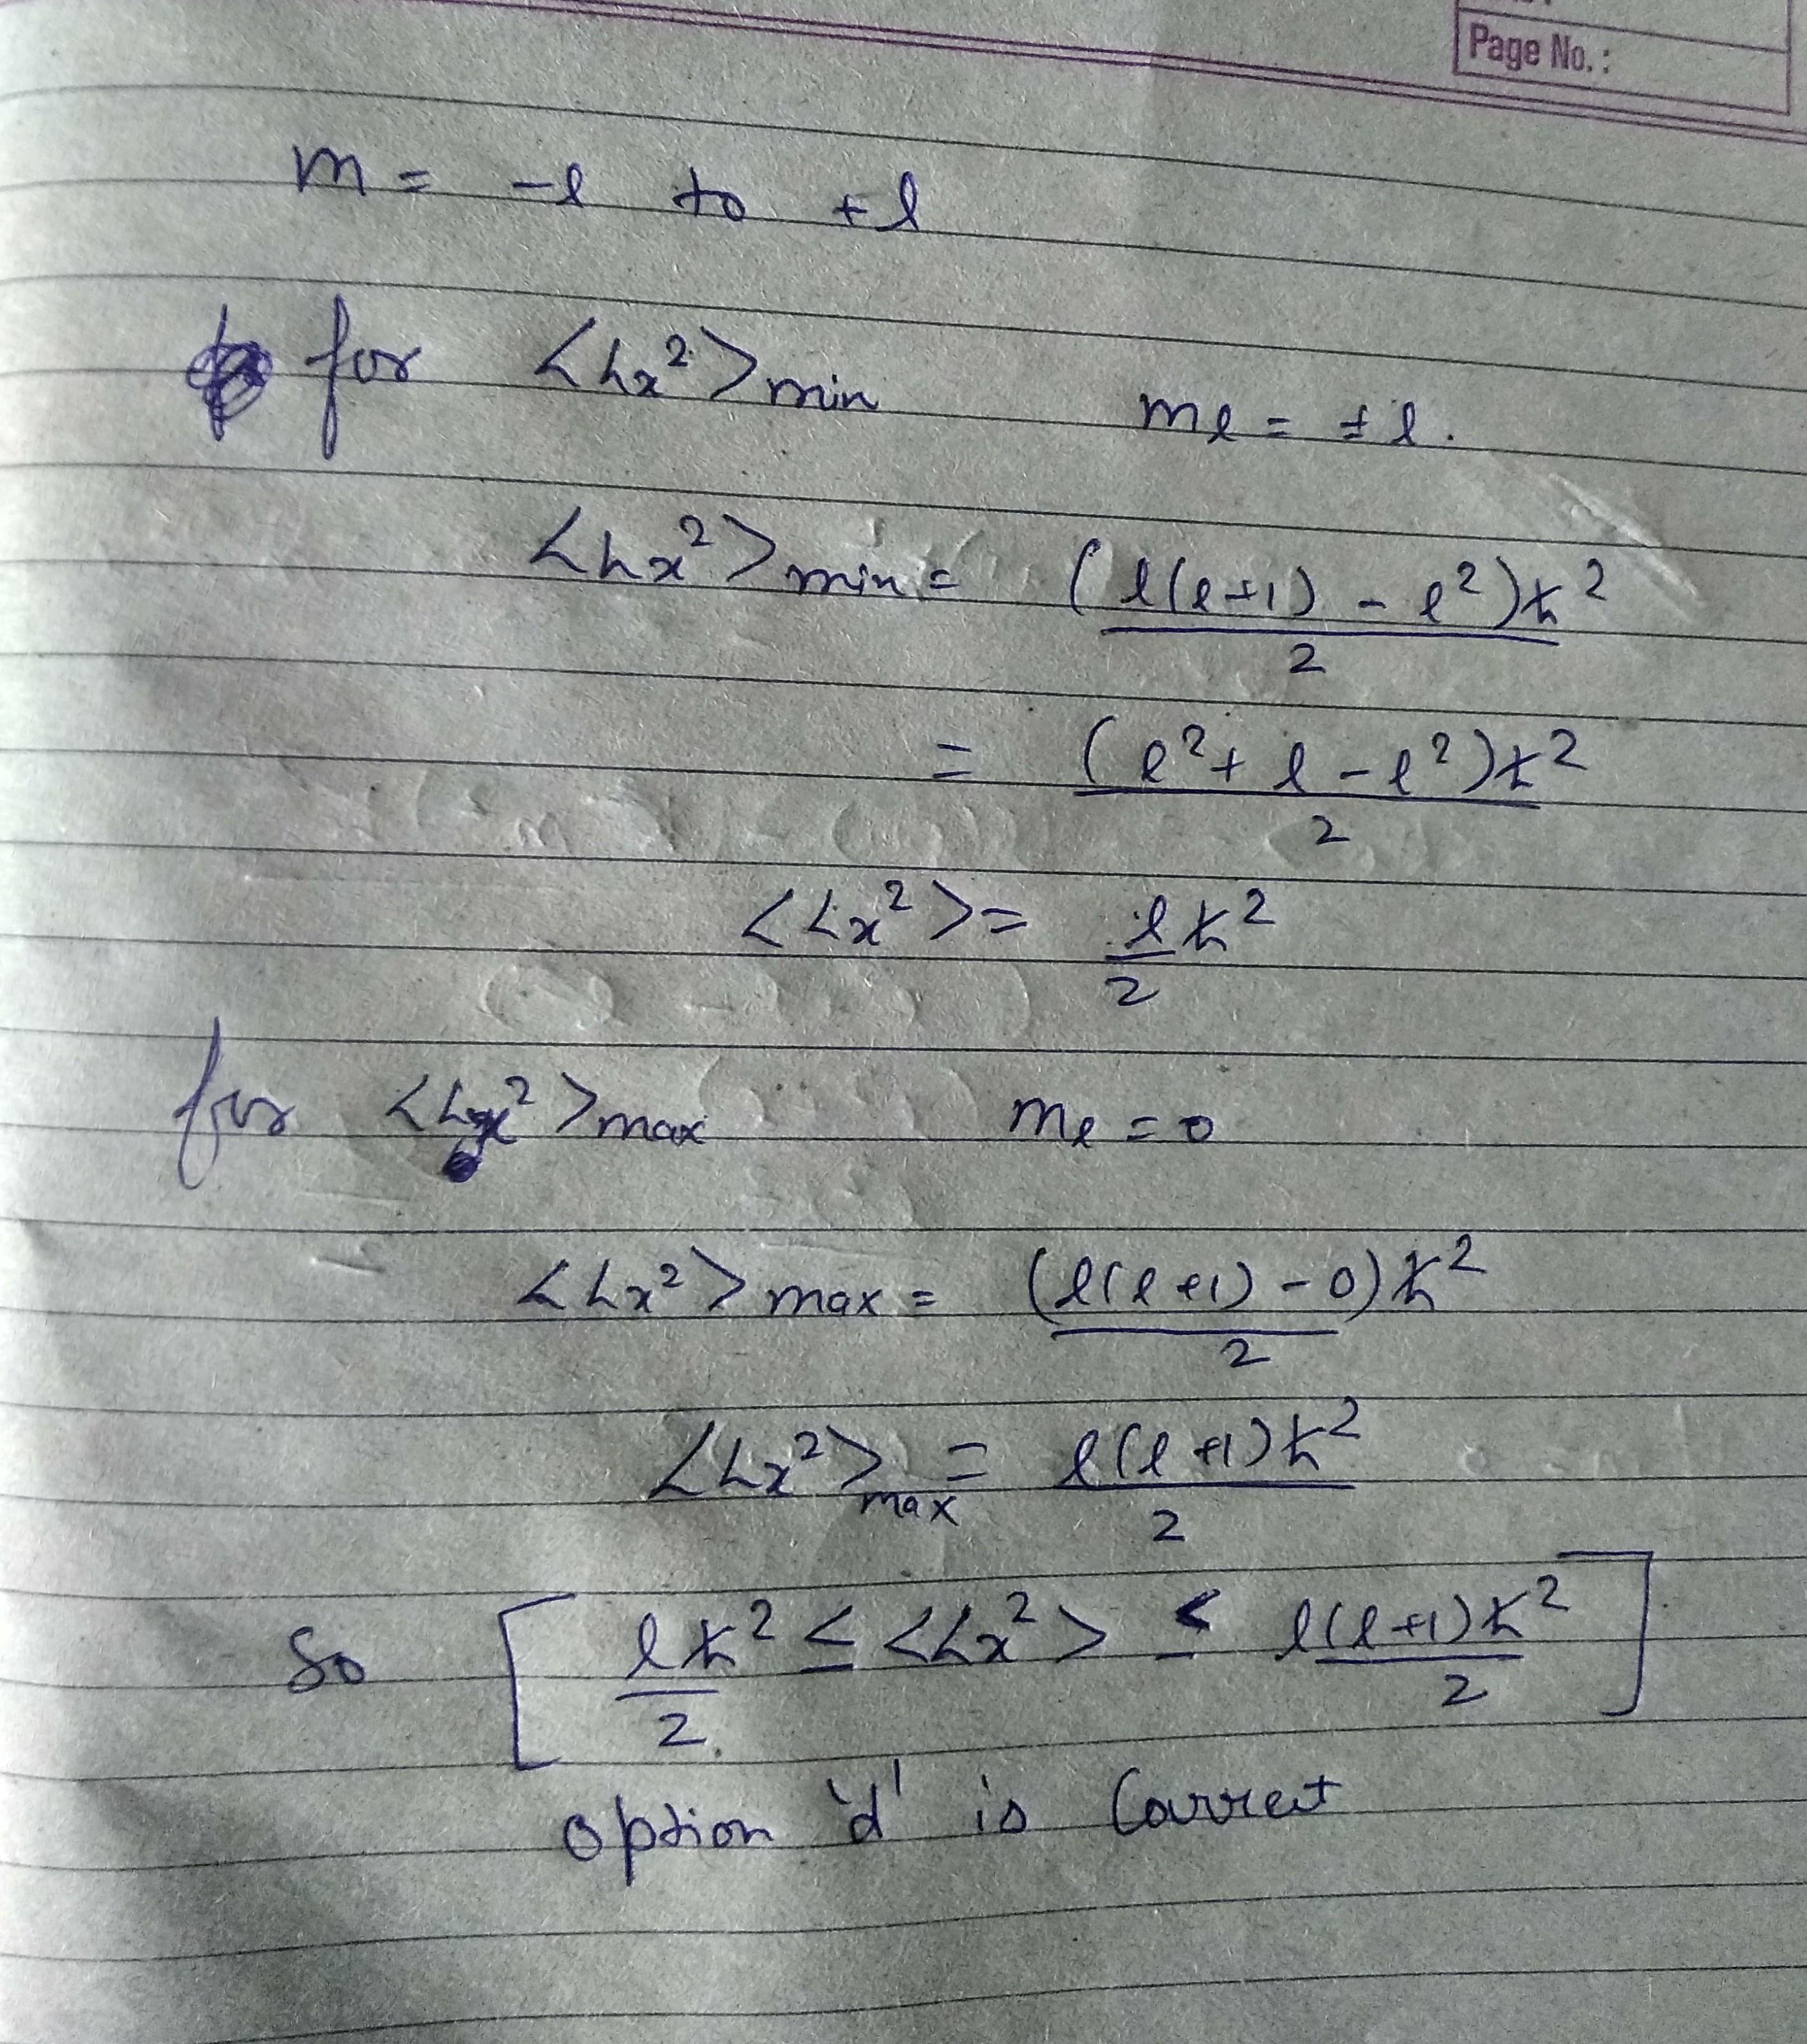 Page No. :
m = -l to +l
for <Lx²>min ml = ±l.
<Lx²>min = (l(l+1) - l²)ħ²/2
= (l² + l - l²)ħ²/2
<Lx²> = l/2 ħ²
for <Lx²>max ml = 0
<Lx²>max = (l(l+1) - 0)ħ²/2
<Lx²>max = l(l+1)ħ²/2
So [lħ²/2 ≤ <Lx²> ≤ l(l+1)ħ²/2]
option 'd' is Correct